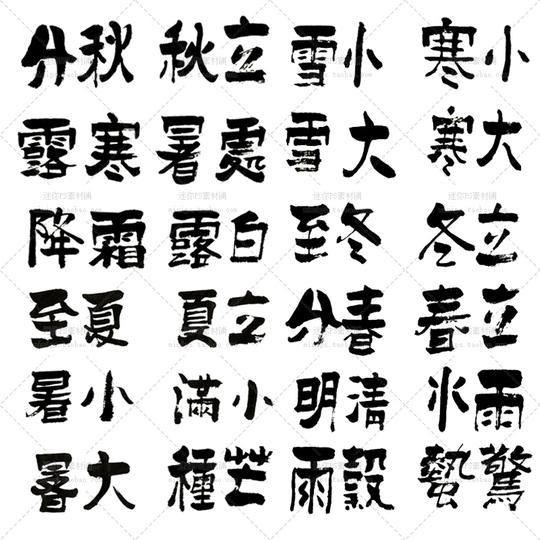 小寒 小雪 立秋 秋分
大寒 大雪 處暑 寒露
立冬 冬至 白露 霜降
立春 春分 立夏 夏至
雨水 清明 小滿 小暑
驚蟄 穀雨 芒種 大暑